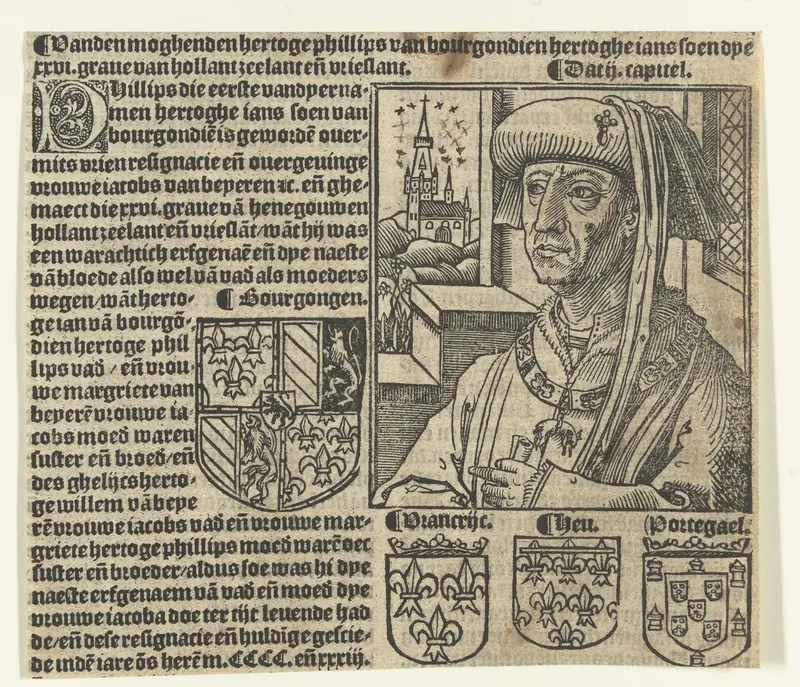 ¶Vanden moghenden hertoge phillips van bourgondien hertoghe ians soen dye
xxvi. graue van hollant zeelant en̄ vrieslant. ¶Dat ij. capitel.
PHillips die eerste vandyer na-
men hertoghe ians soen van
bourgondiē is gewordē ouer-
mits vrien resignacie en̄ ouergeuinge
vrouwe iacobs van beyeren ⁊c. en̄ ghe-
maect die xxvi. graue vā henegouwen
hollant zeelant en̄ vrieslāt/ wāt hij was
een warachtich erfgenaē en̄ dye naeste
vā bloede also wel vā vad̄ als moeders
wegen/ wāt herto- ¶ Bourgongen.
ge ian vā bourgō-
dien hertoge phil
lips vad̄ / en̄ vrou-
we margriete van
beyerē vrouwe ia-
cobs moed̄ waren
suster en̄ broed̄/ en̄
des ghelijcs herto-
ge willem vā beye
rē vrouwe iacobs vad̄ en̄ vrouwe mar-
griete hertoge phillips moed̄ warē oec
suster en̄ broeder/ aldus soe was hi dye
naeste erfgenaem vā vad̄ en̄ moed̄ dye
vrouwe iacoba doe ter tijt leuende had
de/ en̄ dese resignacie en̄ huldīge gescie-
de indē iare ōs herē m. CCCC. en̄ xxxiij.
¶Vrancrijc. ¶Heu. (Portegael.